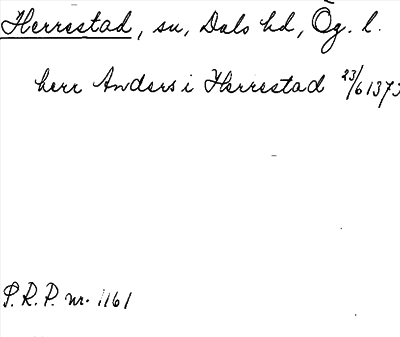 Herrestad, sn, Dals hd, Ög. l.
herr Anders i Herrestad 23/6 1373
P.R.P. nr. 1161